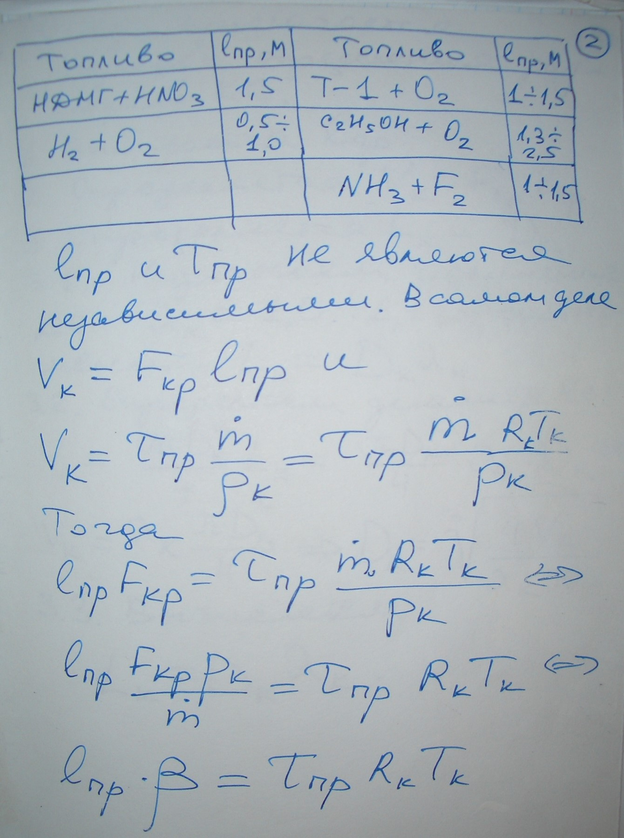 2
Топливо lпр, м Топливо lпр, м
НДМГ + HNO3 1,5 Т-1 + O2 1÷1,5
H2 + O2 0,5÷1,0 C2H5OH + O2 1,3÷2,5
NH3 + F2 1÷1,5
lпр и τпр не являются
независимыми. В самом деле
Vк = Fкр lпр и
Vк = τпр ṁ/ρк = τпр ṁ RкTк/pк
Тогда
lпр Fкр = τпр ṁ RкTк/pк ⇔
lпр Fкр pк/ṁ = τпр RкTк ⇔
lпр · β = τпр RкTк